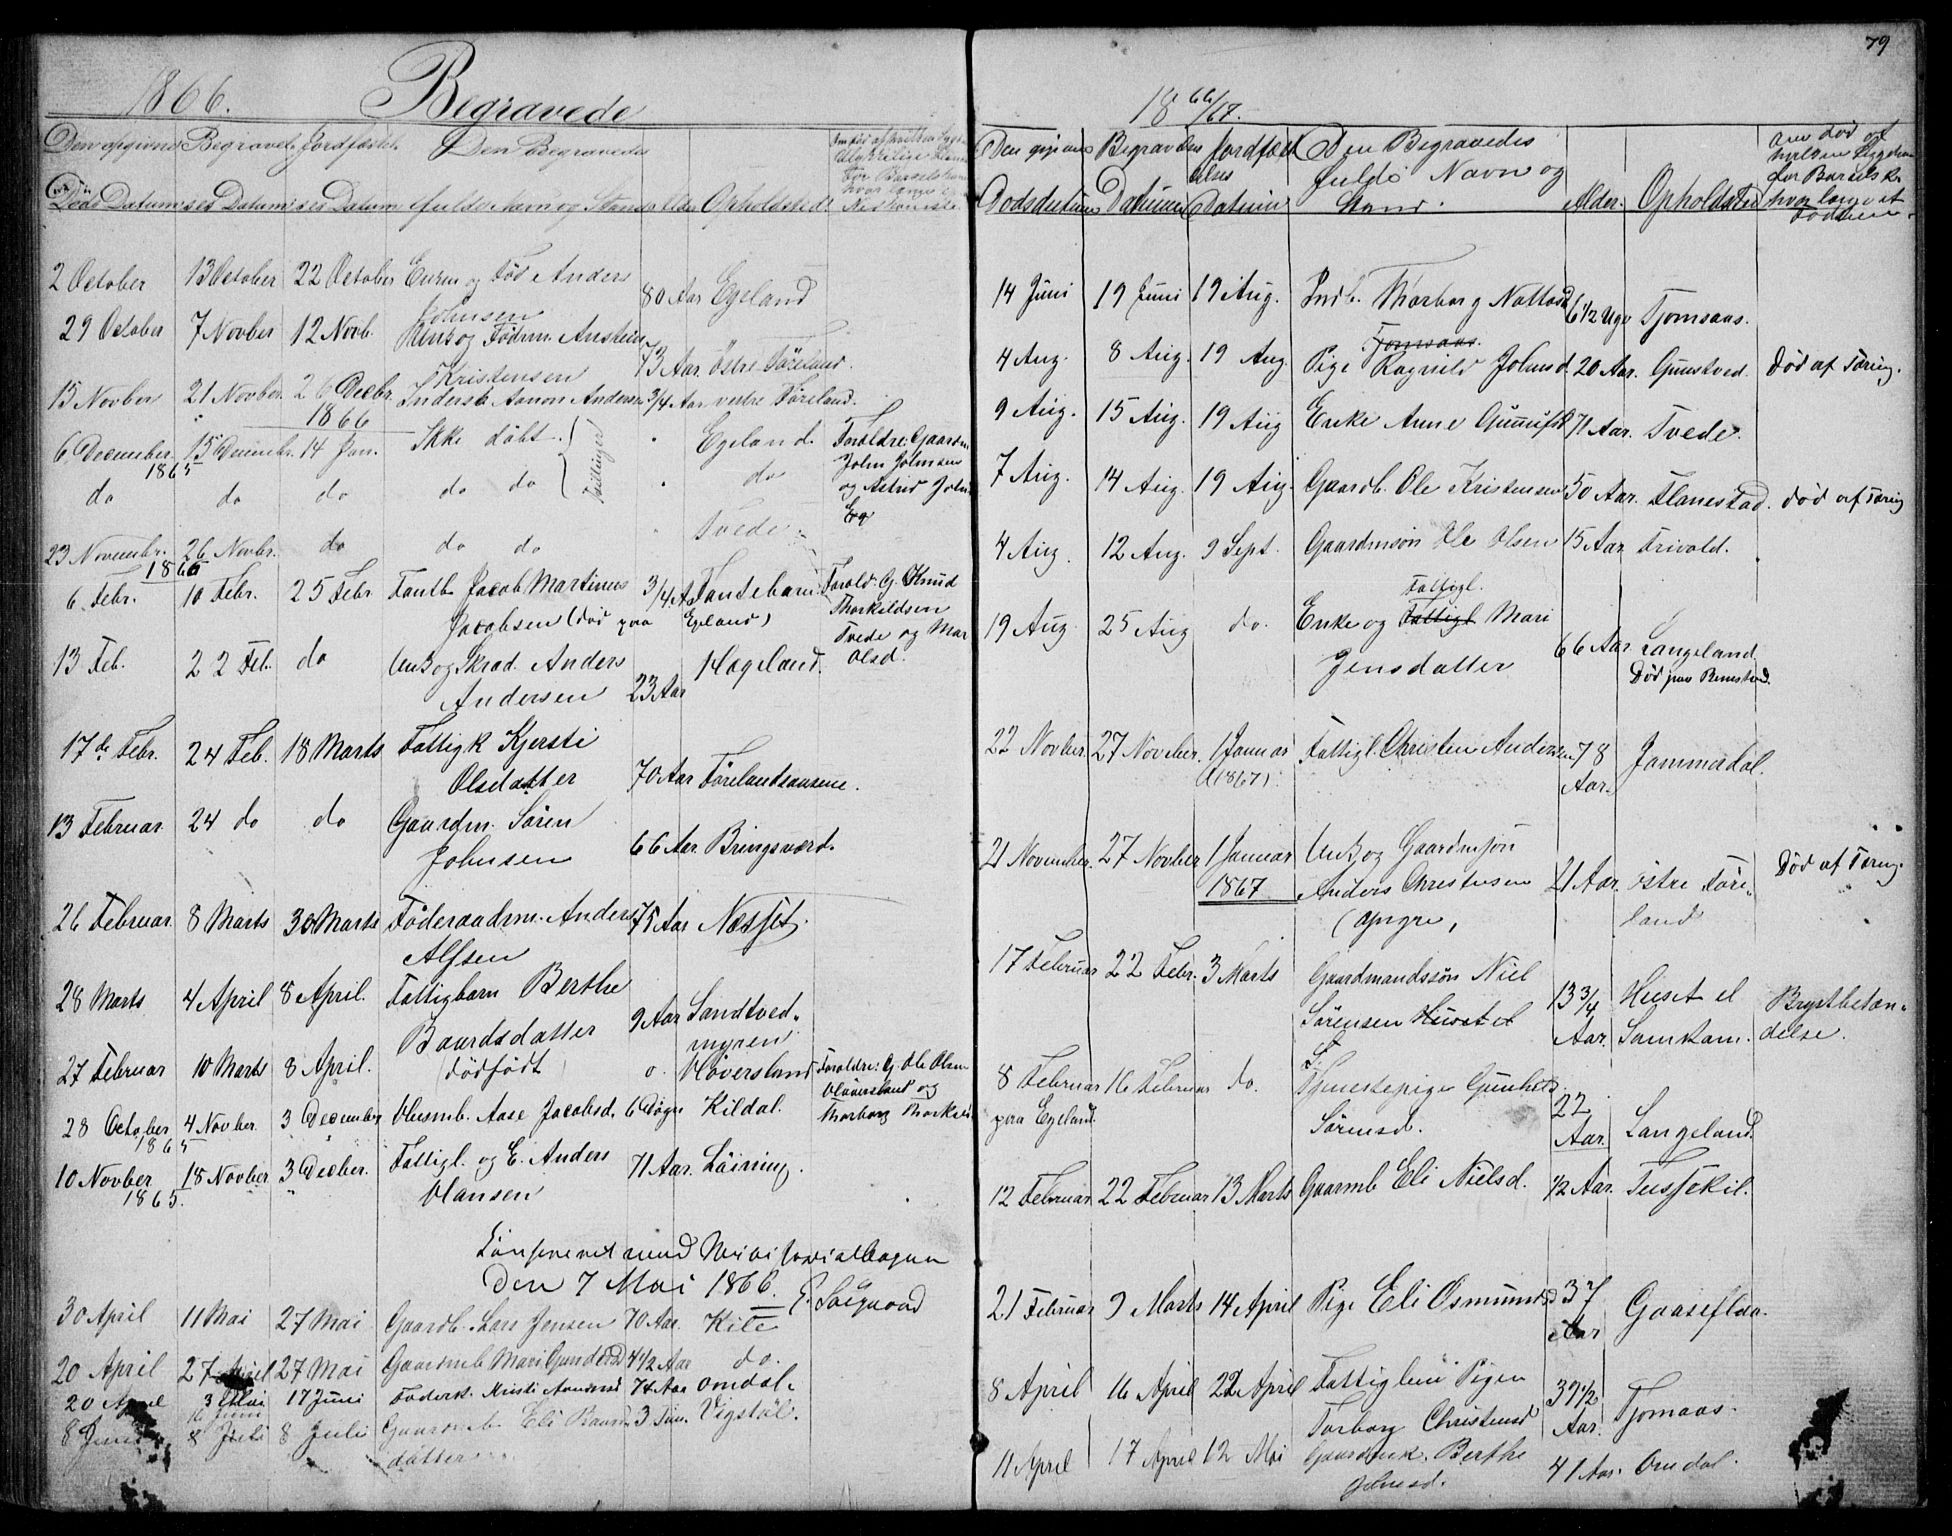 1866. Begravede
Den opgivne Begravede Jordfæstel Den Begravedes
Døds Datum ses Datum ses Datum fulde Navn og Stand Alder Opholdsted
2 October 13 October 22 October Enkem og Fød Anders
Johnsen 80 Aar Egeland
29 October 7 Novber 12 Novb. Unk og Fødm. Anstein
Kristensen 73 Aar Østre Føreland.
15 Novber 21 Novber. 26 Decbr. Inderst Aanon Andersen 3/4 Aar vestre Føreland.
1866
6 December 15 December. 14 Jan. Ikke døbt Tvillinger Egeland. Foreldre: Gaardm
1865 John Johnsen
do do do do do do og Astrid John
Eg
23 Novembr. 26 Novbr. do do do Tvede
1866
6 Febr. 10 Febr. 25 Febr Fantb. Jacob Martinus 3/4 Aar Fantebarn Foreld: G. Knud
Jacobsen (død paa Egeland) Thorkildsen
Tvede og Mar
13 Feb. 22 Feb. do Unk og Skrad. Anders Hægeland. Olsd.
Andersen 23 Aar
17de Febr. 24 Feb. 18 Marts Fattigk Kjersti
Olsdatter 70 Aar Førelandsaasene.
13 Februar 24 do do Gaardm. Søren
Johnsen 66 Aar Bringsværd.
26 Februar. 8 Marts 30 Marts Føderaadm. Anders 75 Aar Næsset.
Alfsen
28 Marts 4 April 8 April. Fattigbarn Berthe
Baardsdatter 9 Aar Sandtved
myren
27 Februar 10 Marts 8 April. dødfødt 0. Høversland Foreldre: G. Ole Olsen
Høversland og
28 October 4 Novber 3 December Husmb. Aase Jacobsd. 6 Døgn Kildal. Thorborg Thorkild
1865
10 Novber 18 Novber 3 Decber. Fattigl. og E. Anders 71 Aar. Løining.
1865. Hansen
Konfereret med Ministerialbogen
den 7 Mai 1866.
30 April 11 Mai 27 Mai Gaardb. Lars Jensen 70 Aar. Kile
20 April 27 April 27 Mai Gaardmb. Mari Gundersd 4 1/2 Aar do.
20 April 3 Mai 17 Juni Føderk. Kirsti 74 Aar Omdal.
16 Juni
8 Juni 8 Juli 8 Juli Gaardmb. Eli Baards 3 Tim. Vigstøl.
datter
79
18 66/67.
Den givne Begravelses Jordfæst Den Begravedes Om død af
elses fulde Navn og
Dødsdatum Datum Datum Stand. Alder. Opholdsted
14 Juni 19 Juni 19 Aug. Indb. Thorborg Nattesd 6 1/2 Uge Tjomsaas.
Tomsaas.
4 Aug. 8 Aug. 19 Aug. Pige Ragnild Johnsd. 20 Aar. Gunstved. Død af Tæring.
9 Aug. 15 Aug. 19 Aug Enke Anne Gunnufsd 71 Aar. Tvede.
7 Aug. 14 Aug. 19 Aug. Gaardb. Ole Kristensen 50 Aar. Flanestad. død af Tæring
4 Aug. 12 Aug. 9 Sept. Gaardmsøn Ole Olsen 15 Aar Trivold.
Fattigl.
19 Aug. 25 Aug do. Enke og Fattigl Mari
Jensdatter 66 Aar Langeland
Død paa Rimstved.
22 Novber. 27 November. 1 Januar Fattigl. Christen Andersen 78 Jammerdal.
(1867). Aar.
21 November. 27 Novber 1 Januar Unk og Gaardmsøn
1867. Anders Christensen 21 Aar. Østre Føre- Død af Tæring.
(yngre, land
17 Februar 22 Febr. 3 Marts Gaardmandssøn Niel
Sørensen Huset el 13 3/4 Huset el Brystbetæn-
S. Aar. Samkam. delse.
8 Februar 16 Februar do. Tjenestepige Gunhild
paa Egeland. Sørensd. 22
Aar. Langeland.
12 Februar 22 Februar 13 Marts Gaarmb Eli Nielsd. 1/2 Aar. Tussekil.
21 Februar 9 Marts 14 April Pige Eli Osmundsd 37 Gaaseflaa.
Aar
8 April 16 April 22 April Fattiglem Pigen
Torborg Christensd 39 1/2 Tjomaas.
Aar.
11 April 17 April 12 Mai Gaardmk. Berthe 41 Aar. Omdal.